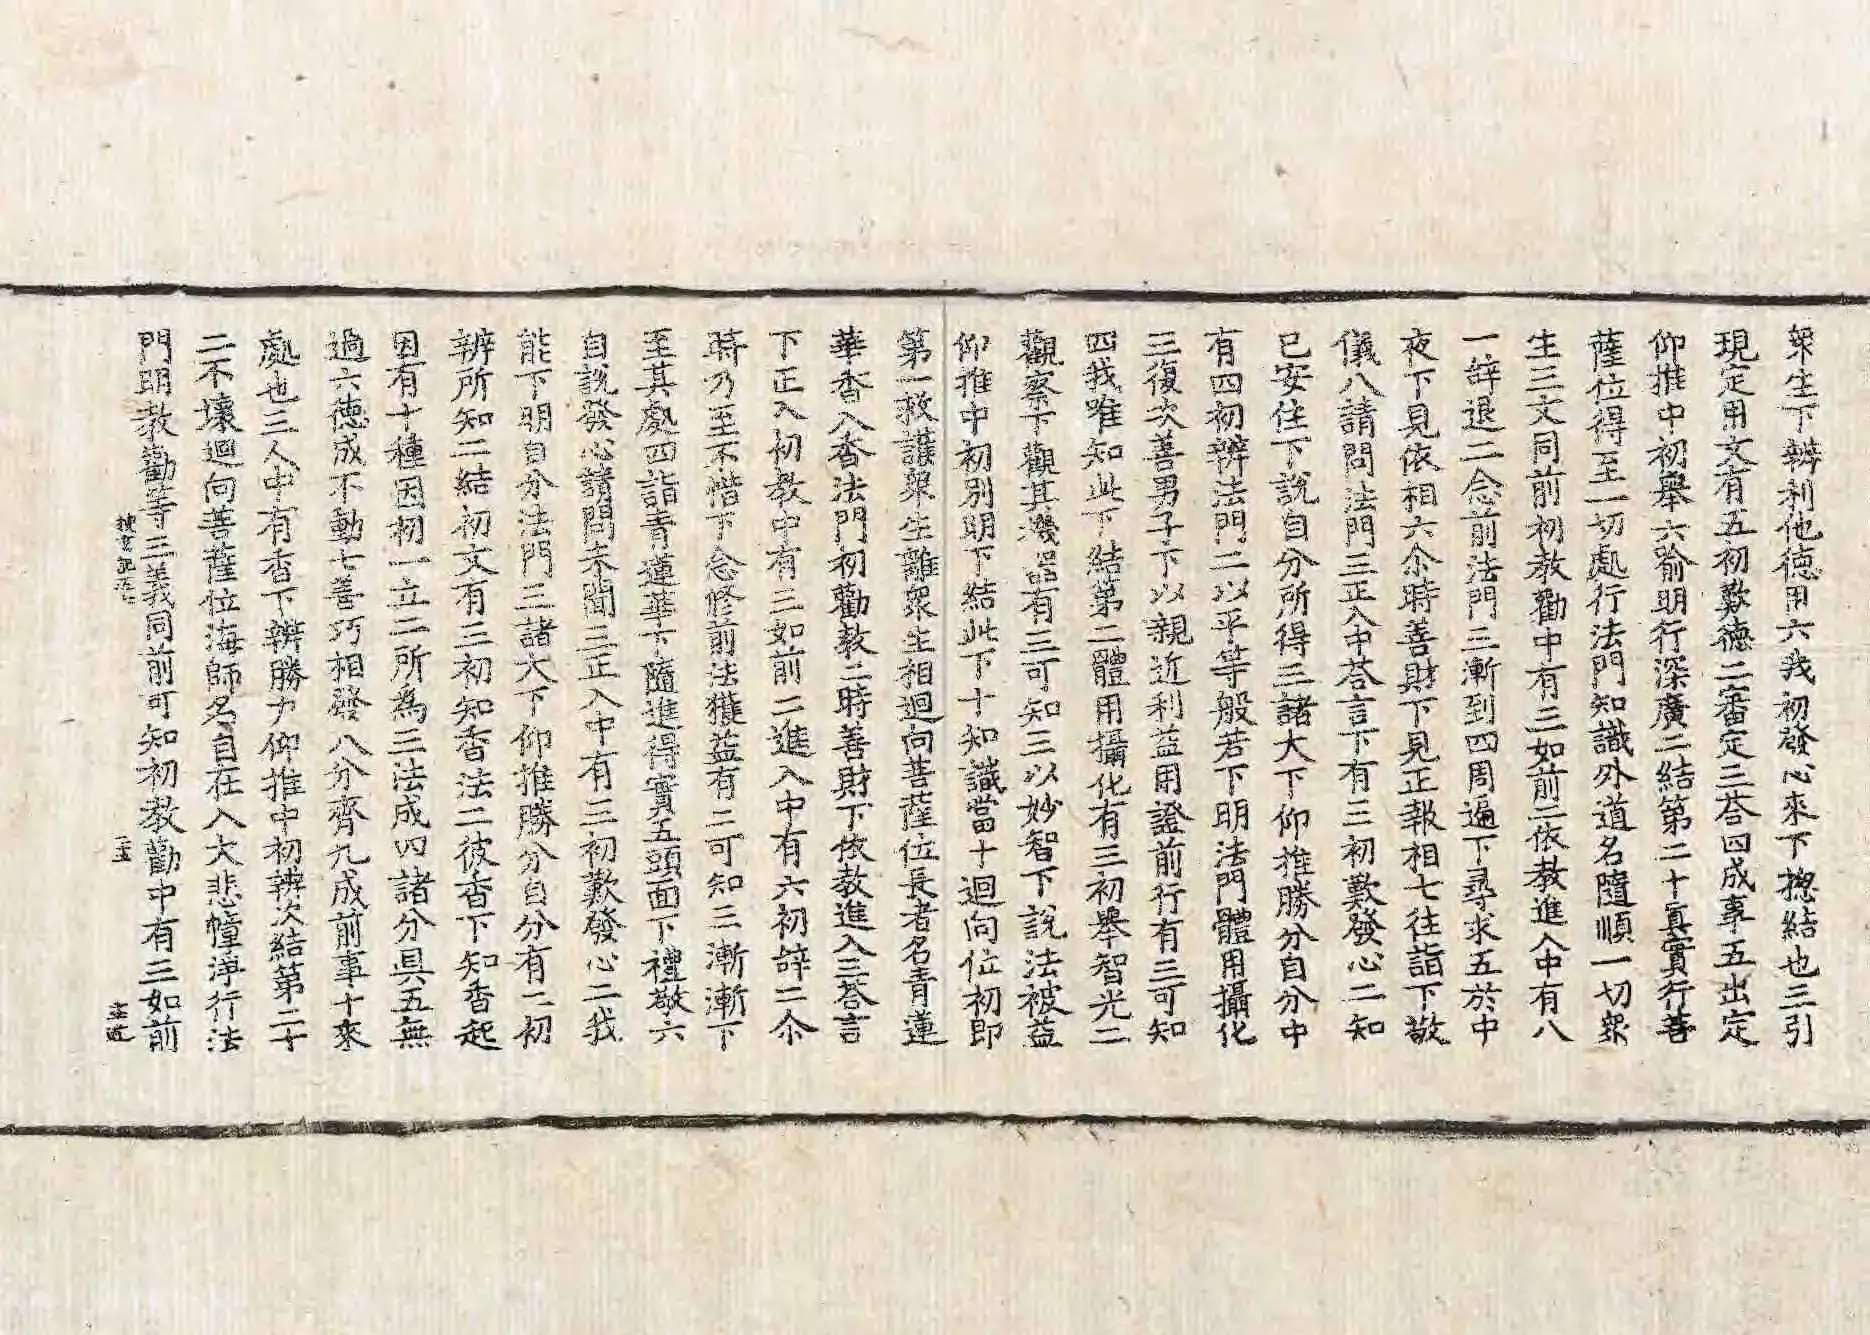 衆生下辨利他德用六我初發心來下揔結也三引
現定用文有五初歎德二審定三荅四成事五出定
仰推中初舉六喻明行深廣二結第二十真實行菩
薩位得至一切處行法門知識外道名隨順一切衆
生三文同前初教勸中有三如前二依教進入中有八
一辝退二念前法門三漸到四周遍下尋求五於中
夜下見依相六尒時善財下見正報相七往詣下敬
儀八請問法門三正入中荅言下有三初歎發心二知
已安住下說自分所得三諸大下仰推勝分自分中
有四初辨法門二以平等般若下明法門體用攝化
三復次善男子下以親近利益用證前行有三可知
四我唯知此下結第二體用攝化有三初舉智光二
觀察下觀其機器有三可知三以妙智下說法被益
仰推中初別明下結此下十知識當十迴向位初即
第一救護衆生離衆生相迴向菩薩位長者名青蓮
華香入香法門初勸教二時善財下依教進入三荅言
下正入初教中有三如前二進入中有六初辝二尒
時乃至不惜下念修前法獲益有二可知三漸漸下
至其處四詣青蓮華下隨進得實五頭面下禮敬六
自說發心請問未聞三正入中有三初歎發心二我
能下明自分法門三諸大下仰推勝分自分有二初
辨所知二結初文有三初知香法二彼香下知香起
因有十種因初一立二所為三法成四諸分具五無
過六德成不動七善巧相發八分齊九成前事十來
處也三人中有香下辨勝力仰推中初辨次結第二十
二不壞迴向菩薩位海師名自在入大悲幢淨行法
門明教勸等三義同前可知初教勸中有三如前